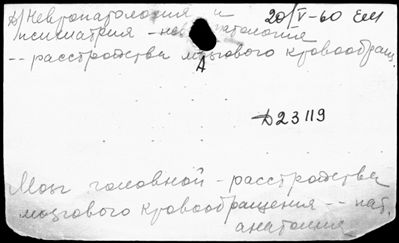 А) Невропатология и 20/V-60 Ем
психиатрия - нев патология
-- расстройства мозгового кровообращ.
А
Д23119
Мозг головной - расстройства
мозгового кровообращения -- пат.
анатомия